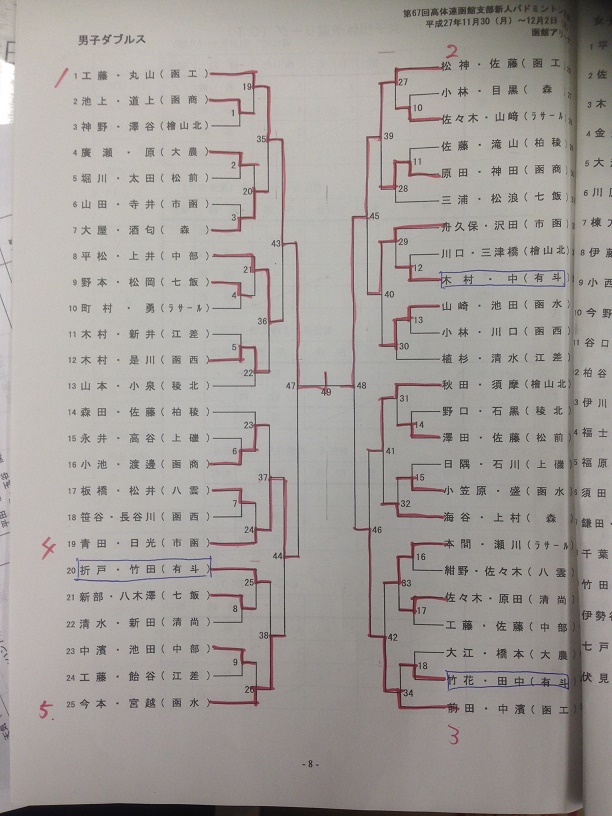 第67回高体連函館支部新人バドミントン
平成27年11月30（月）～12月2日
函館アリ
男子ダブルス
1
1 工藤・丸山（函工）
2 池上・道上（函商）
3 神野・澤谷（檜山北）
4 廣瀬・原（大農）
5 堀川・太田（松前）
6 山田・寺井（市函）
7 大屋・酒匂（森）
8 平松・上井（中部）
9 野本・松岡（七飯）
10 町村・勇（ラサール）
11 木村・新井（江差）
12 木村・是川（函西）
13 山本・小泉（稜北）
14 森田・佐藤（柏稜）
15 永井・高谷（上磯）
16 小池・渡邊（函商）
17 板橋・松井（八雲）
18 笹谷・長谷川（函西）
4
19 青田・日光（市函）
20 折戸・竹田（有斗）
21 新部・八木澤（七飯）
22 清水・新田（清尚）
23 中濱・池田（中部）
24 工藤・飴谷（江差）
5.
25 今本・宮越（函水）
19
1
35
2
20
3
43
21
4
36
5
22
47
23
6
37
7
24
44
25
8
38
9
26
49
2
松神・佐藤（函工
小林・目黒（森
佐々木・山﨑（ラサール
佐藤・滝山（柏稜
原田・神田（函商
三浦・松浪（七飯
舟久保・沢田（市函
川口・三津橋（檜山北
木村・中（有斗
山崎・池田（函水
小林・川口（函西
植杉・清水（江差
秋田・須摩（檜山北
野口・石黒（稜北
澤田・佐藤（松前
日隅・石川（上磯
小笠原・盛（函水
海谷・上村（森
本間・瀬川（ラサール
紺野・佐々木（八雲
佐々木・原田（清尚
工藤・佐藤（中部
大江・橋本（大農
竹花・田中（有斗
前田・中濱（函工
3
27
10
39
11
28
45
29
12
40
13
30
48
31
14
41
15
32
46
16
33
17
42
18
34
- 8 -
1 平
2 佐
3 木
4 金
5 大
6 川
7 棟
8 伊
9 小西
10 今野
11 谷口
柏谷
伊川
福士
福原
須田
鎌田・
千葉
竹田
伊勢谷
七戸
伏見